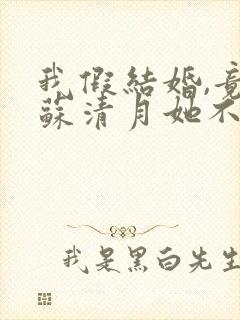 我假結婚,竟
蘇清月她不
我是黑白先生